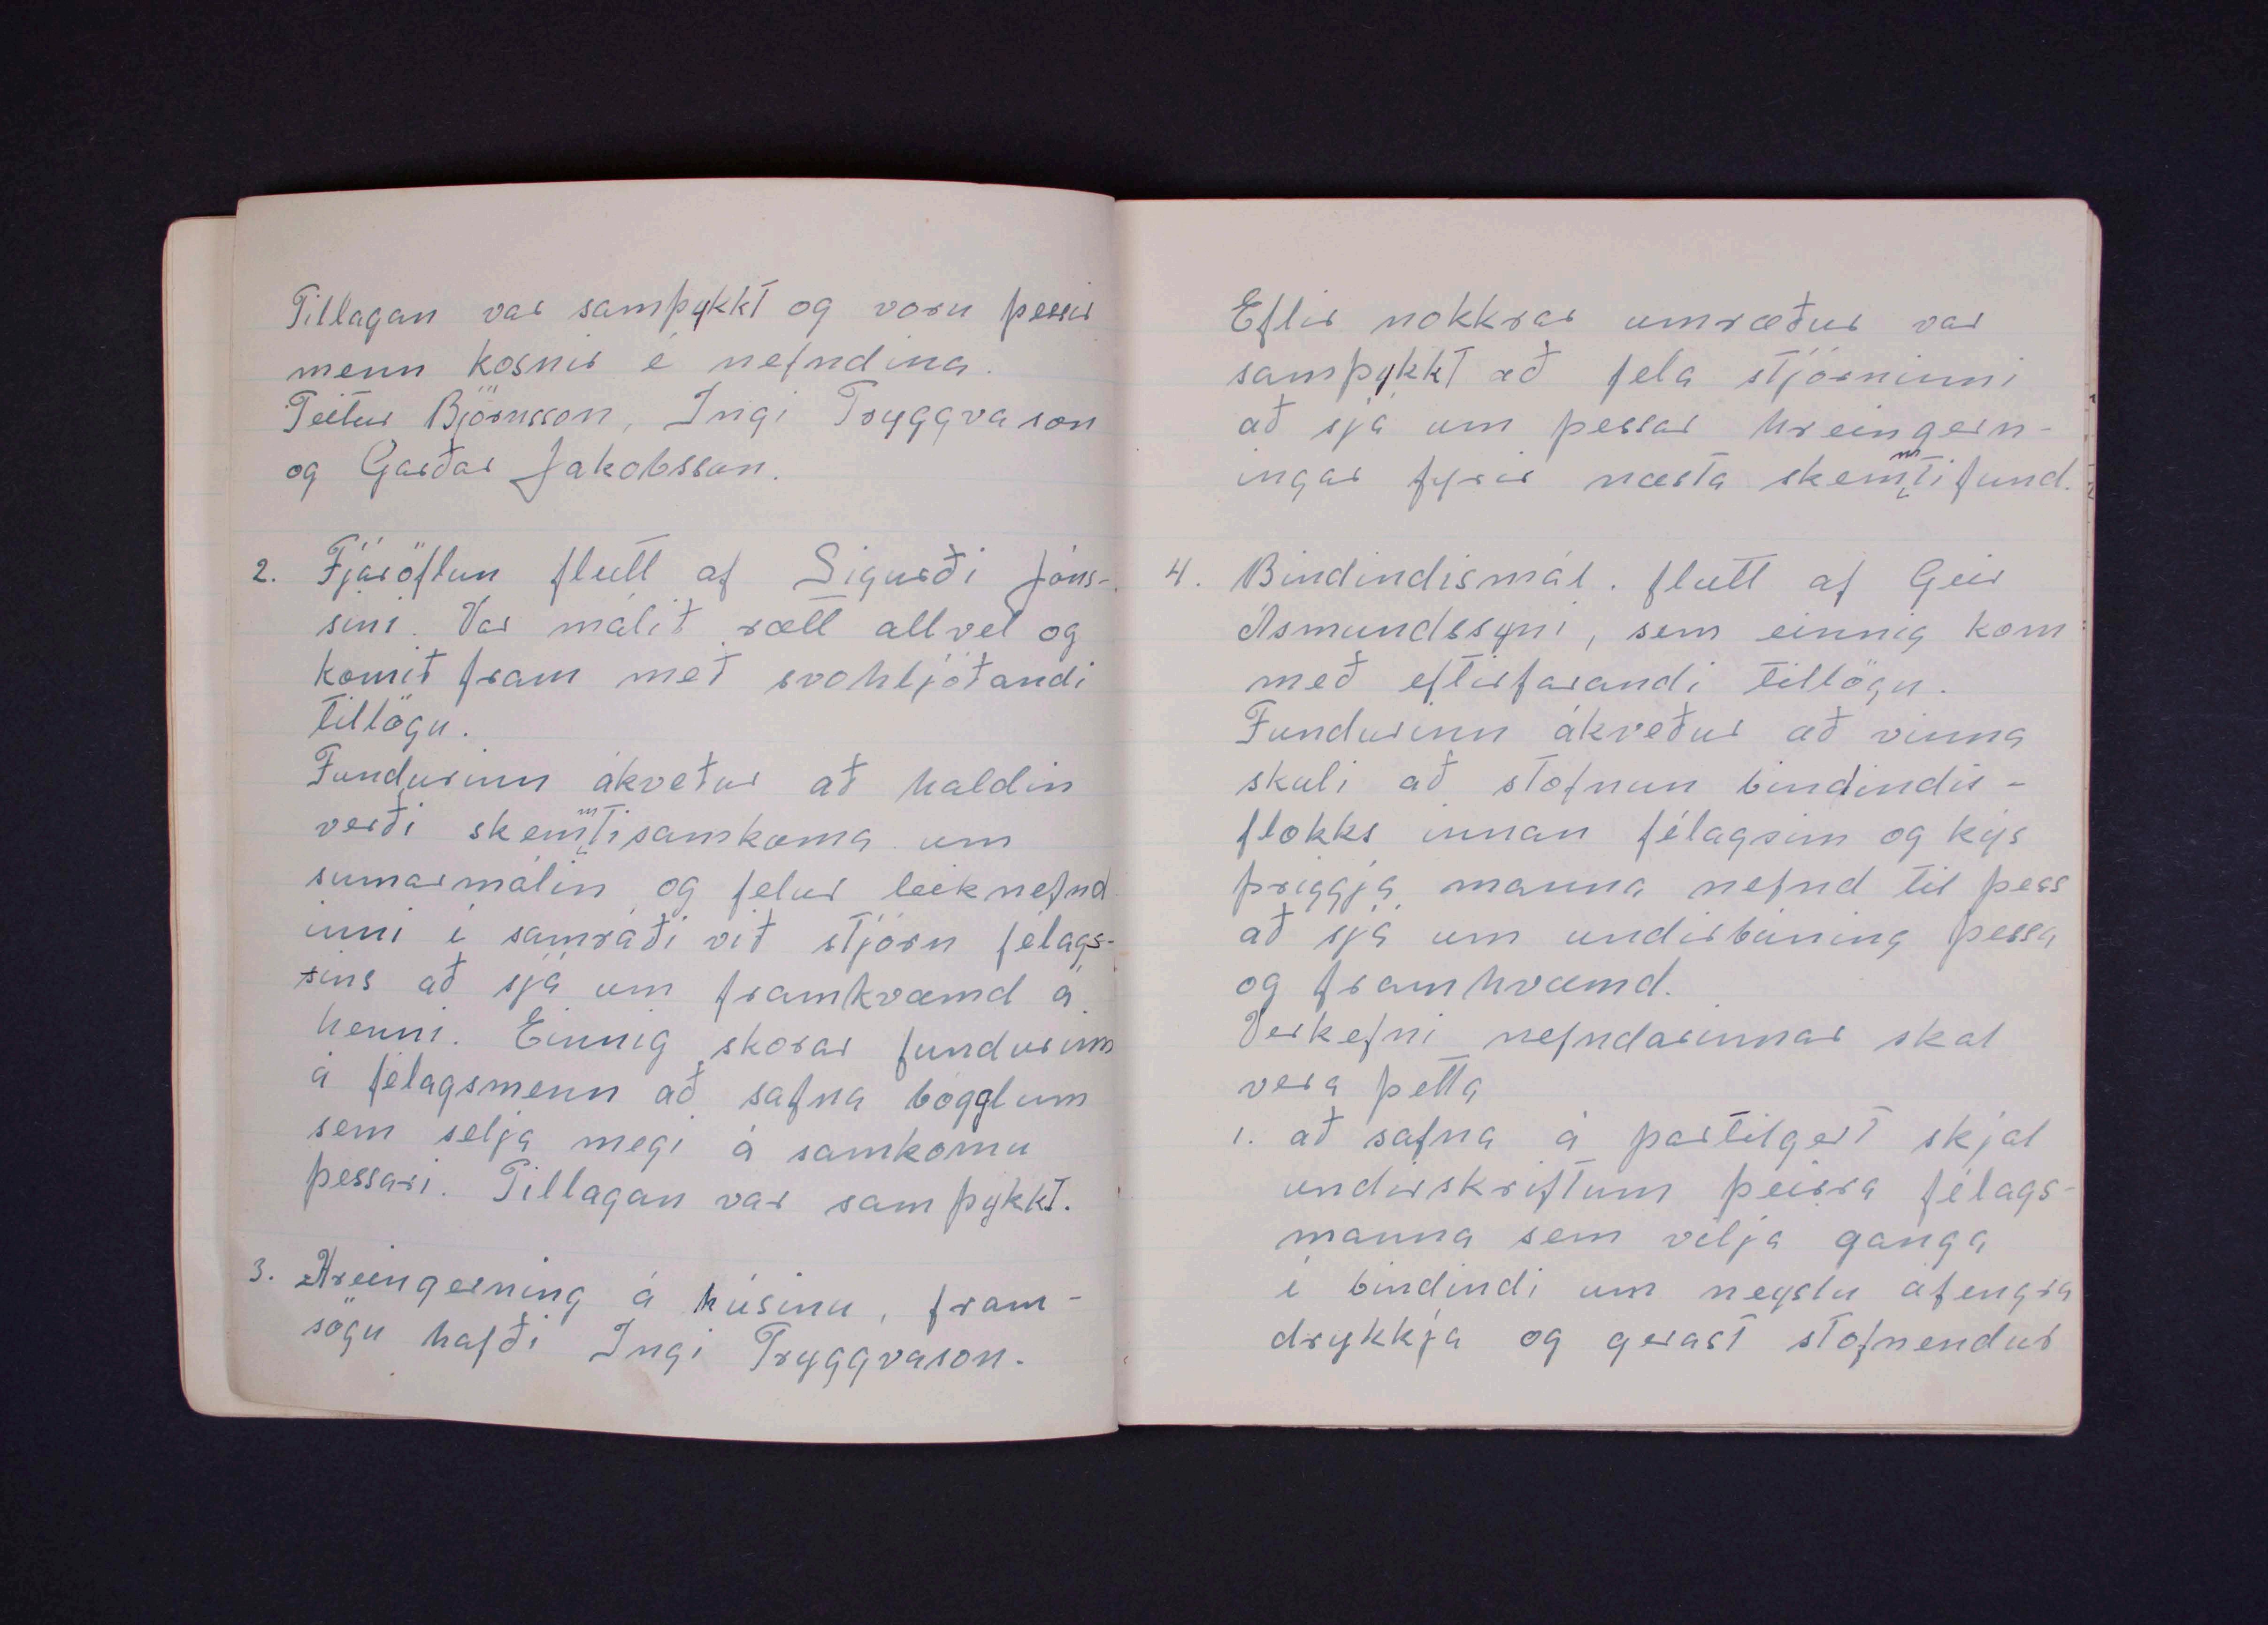 Tillagan var samþykkt og voru þessir
menn kosnir í nefndina.
Teitur Björnsson, Ingi Tryggvason
og Garðar Jakobsson.
2. Fjáröflun flutt af Sigurði Jóns-
sini. Var málið rætt allvel og
komið fram með svohljóðandi
tillögu.
Fundurinn ákveður að haldin
verði skemmtisamkoma um
sumarmálin og felur leiknefnd
inni í samráði við stjórn félags-
sins að sjá um framkvæmd á
henni. Einnig skorar fundurinn
á félagsmenn að safna bögglum
sem selja megi á samkomu
þessari. Tillagan var samþykkt.
3. Hreingerning á húsinu, fram-
sögu hafði Ingi Tryggvason.
Eftir nokkrar umræður var
samþykkt að fela stjórninni
að sjá um þessar hreingern-
ingar fyrir næsta skemmtifund.
4. Bindindismál. flutt af Geir
Ásmundssyni, sem einnig kom
með eftirfarandi tillögu.
Fundurinn ákveður að vinna
skuli að stofnun bindindis-
flokks innan félagsins og kýs
þriggja manna nefnd til þess
að sjá um undirbúning þessa
og framhvæmd.
Verkefni nefndarinnar skal
vera þetta
1. að safna á þartilgert skjal
undirskriftum þeirra félags-
manna sem vilja ganga
í bindindi um neyslu áfengra
drykkja og gerast stofnendur